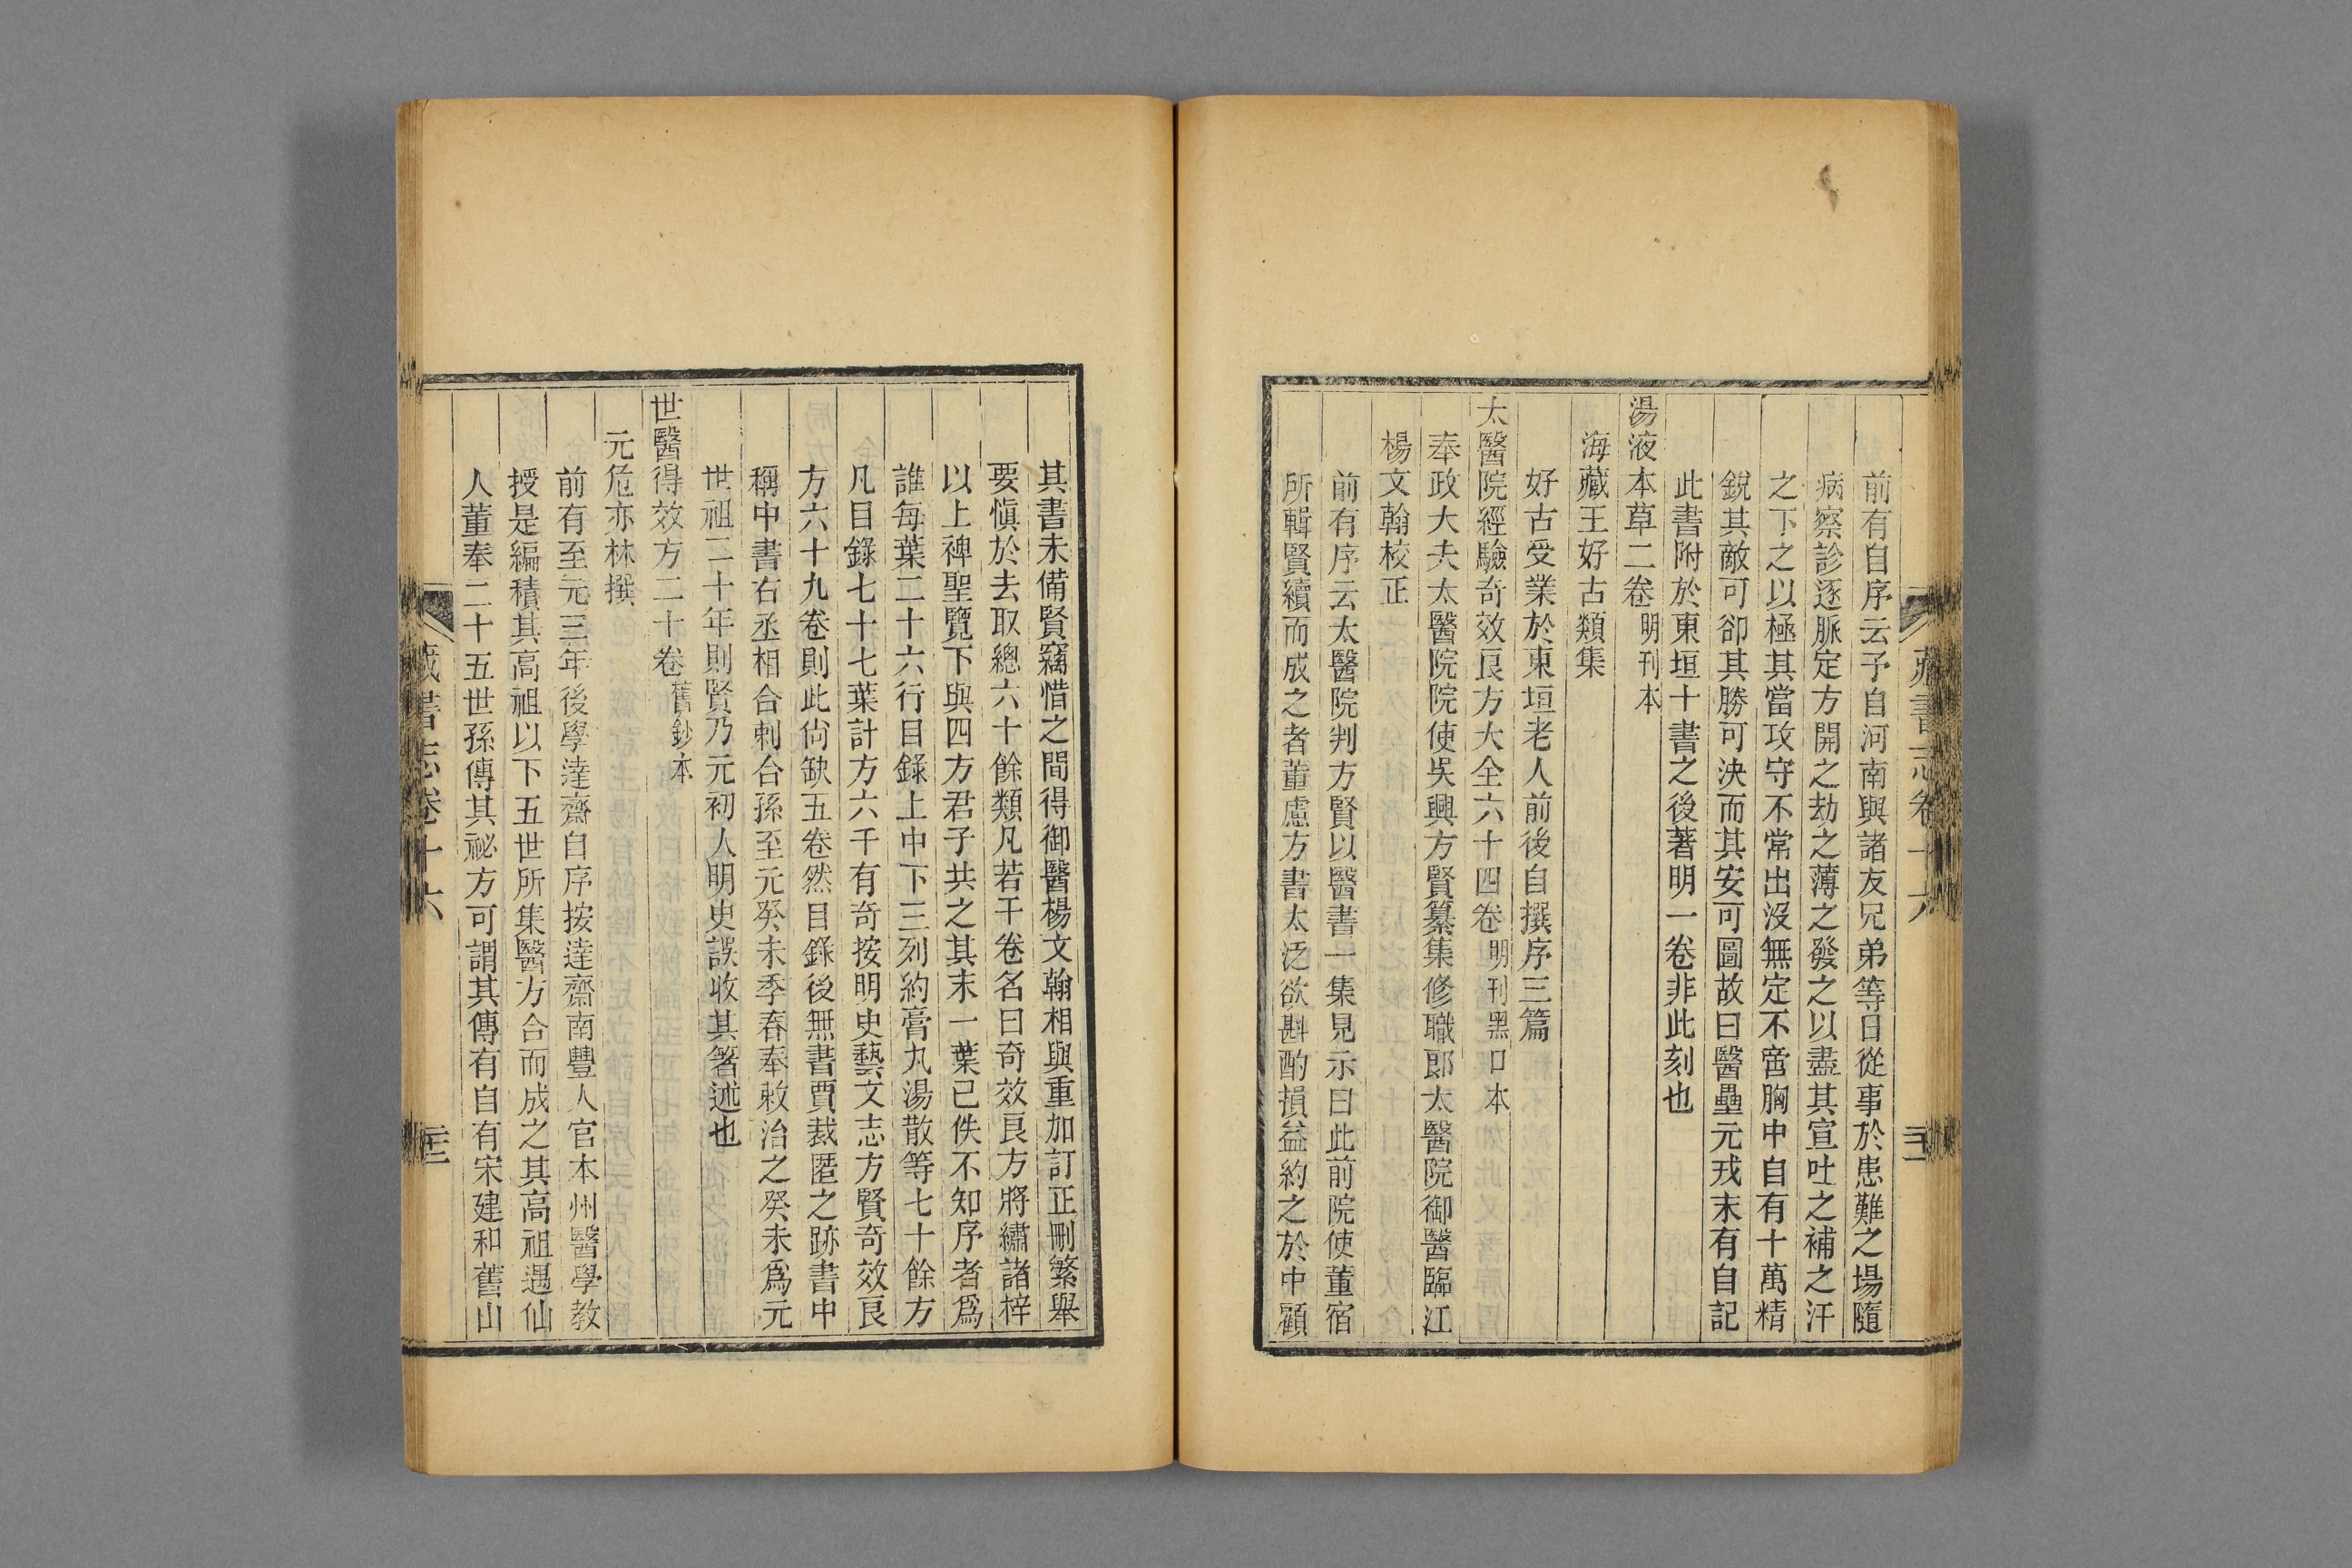 前有自序云予自河南與諸友兄弟等日從事於患難之場隨
病察診逐脈定方開之劫之薄之發之以盡其宣吐之補之汗
之下之以極其當攻守不常出沒無定不啻胸中自有十萬精
銳其敵可卻其勝可決而其安可圖故曰醫壘元戎末有自記
此書附於東垣十書之後著明一卷非此刻也
湯液本草二卷明刊本
海藏王好古類集
好古受業於東垣老人前後自撰序三篇
太醫院經驗奇效良方大全六十四卷明刊黑口本
奉政大夫太醫院院使吳興方賢纂集修職郎太醫院御醫臨江
楊文翰校正
前有序云太醫院判方賢以醫書一集見示曰此前院使董宿
所輯賢續而成之者董慮方書太泛欲斟酌損益約之於中顧
其書未備賢竊惜之間得御醫楊文翰相與重加訂正刪繁舉
要慎於去取總六十餘類凡若干卷名曰奇效良方將繡諸梓
以上裨聖覽下與四方君子共之其末一葉已佚不知序者爲
誰每葉二十六行目錄上中下三列約膏丸湯散等七十餘方
凡目錄七十七葉計方六千有奇按明史藝文志方賢奇效良
方六十九卷則此尚缺五卷然目錄後無書賈裁匿之跡書中
稱中書右丞相合剌合孫至元癸未季春奉敕治之癸未爲元
世祖二十年則賢乃元初人明史誤收其箸述也
世醫得效方二十卷舊鈔本
元危亦林撰
前有至元三年後學達齋自序按達齋南豐人官本州醫學教
授是編積其高祖以下五世所集醫方合而成之其高祖遇仙
人董奉二十五世孫傳其祕方可謂其傳有自有宋建和舊山
藏書志卷十六